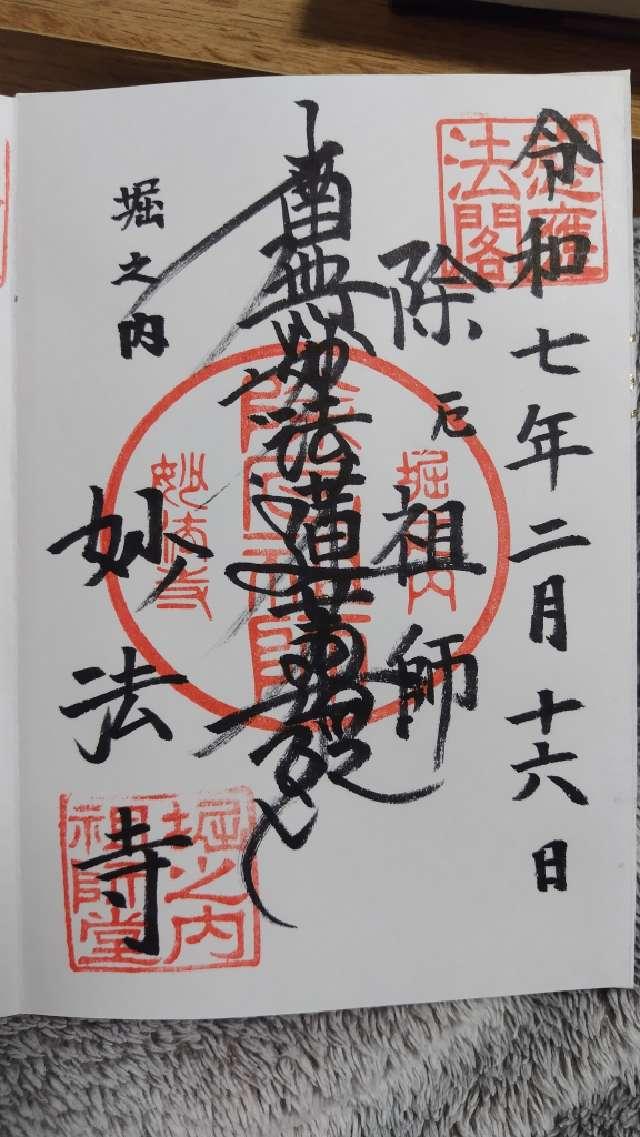 令和七年二月十六日
除厄祖師
南無妙法蓮華経
堀之内
妙法寺
法閣
堀之内
除厄祖師
妙法寺
堀之内
祖師堂